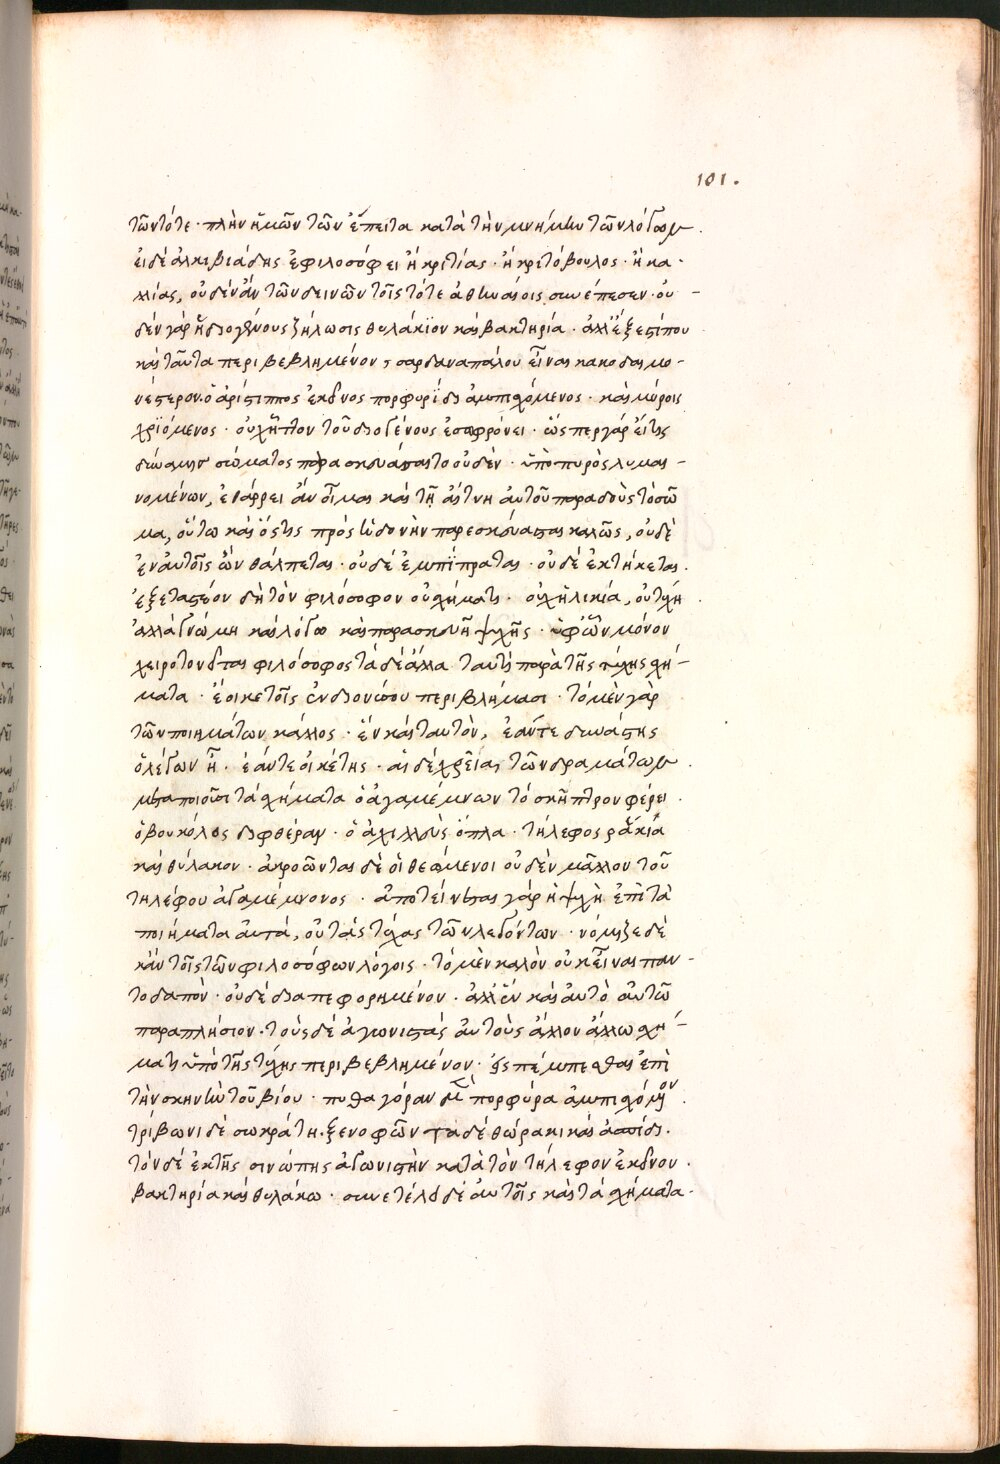 101.
τῶν τότε · πλὴν ἡμῶν τῶν ἔπειτα κατὰ τὴν μνήμην τῶν λόγων.
εἰ δὲ ἀλκιβιάδης ἐφιλοσόφει ἢ κριτίας · ἢ κριτόβουλος · ἢ καλ-
λίας, οὐδὲν ἂν τῶν δεινῶν τοῖς τότε ἀθηναίοις συνέπεσεν · οὐ-
δὲν γὰρ ἡ διογένους ζήλωσις θυλάκιον καὶ βακτηρία · ἀλλ' ἔξεστί που
καὶ ταῦτα περιβεβλημένον, σαρδαναπάλου εἶναι κακοδαιμο-
νέστερον · ὁ ἀρίστιππος ἐκεῖνος πορφυρίδι ἀμπισχόμενος · καὶ μύροις
χριόμενος · οὐχ ἧττον τοῦ διογένους ἐσωφρόνει · ὥσπερ γὰρ εἴ τις
δύναμιν σώματος παρασκευάσαιτο οὐδὲν · ὑπὸ πυρὸς λυμαι-
νομένων, ἐθάρρει ἂν οἶμαι καὶ τῇ αἴτνῃ αὐτοῦ παραδοὺς τὸ σῶ
μα, οὕτω καὶ ὅστις πρὸς ἡδονὴν παρεσκεύασται καλῶς, οὐδὲ
ἐν αὐτοῖς ὢν θάλπεται · οὐδὲ ἐμπίπραται · οὐδὲ ἐκτήκεται.
ἐξεταστέον δὴ τὸν φιλόσοφον οὐ σχήματι · οὐχ ἡλικίᾳ, οὐ τύχῃ
ἀλλὰ γνώμῃ καὶ λόγῳ καὶ παρασκευῇ ψυχῆς · ὑφ' ὧν μόνον
χειροτονεῖται φιλόσοφος τὰ δὲ ἄλλα ταυτὶ παρὰ τῆς τύχης σχή-
ματα · ἔοικε τοῖς ἐν διονύσου περιβλήμασι · τὸ μὲν γὰρ
τῶν ποιημάτων κάλλος · ἓν καὶ ταυτὸν, ἐάν τε δυνάστης
ὁ λέγων ᾖ · ἐάν τε οἰκέτης · αἱ δὲ χρεῖαι τῶν δραμάτων.
μεταποιοῦσι τὰ σχήματα ὁ ἀγαμέμνων τὸ σκῆπτρον φέρει.
ὁ βουκόλος διφθέραν · ὁ ἀχιλλεὺς ὅπλα · τήλεφος ῥάκια
καὶ θύλακον · ἀκροῶνται δὲ οἱ θεώμενοι οὐδὲν μᾶλλον τοῦ
τηλέφου ἀγαμέμνονος · ἀποτείνεται γὰρ ἡ ψυχὴ ἐπὶ τὰ
ποιήματα αὐτά, οὐ τὰς τύχας τῶν λεγόντων · νόμιζε δὲ
κἀν τοῖς τῶν φιλοσόφων λόγοις · τὸ μὲν καλὸν οὐκ εἶναι παν-
τοδαπὸν · οὐδὲ διαπεφορημένον · ἀλλ' ἓν καὶ αὐτὸ αὑτῷ
παραπλήσιον · τοὺς δὲ ἀγωνιστὰς αὐτοὺς ἄλλον ἄλλῳ σχή-
ματι ὑπὸ τῆς τύχης περιβεβλημένον · εἰσπέμπεσθαι ἐπὶ
τὴν σκηνὴν τοῦ βίου · πυθαγόραν μὲν πορφύρᾳ ἀμπισχόμενον.
τρίβωνι δὲ σωκράτη · ξενοφῶντα δὲ θώρακι καὶ ἀσπίδι.
τὸν δὲ ἐκ τῆς σινώπης ἀγωνιστὴν κατὰ τὸν τήλεφον ἐκεῖνον.
βακτηρίᾳ καὶ θυλάκῳ · συνετέλει δὲ αὐτοῖς καὶ τὰ σχήματα.